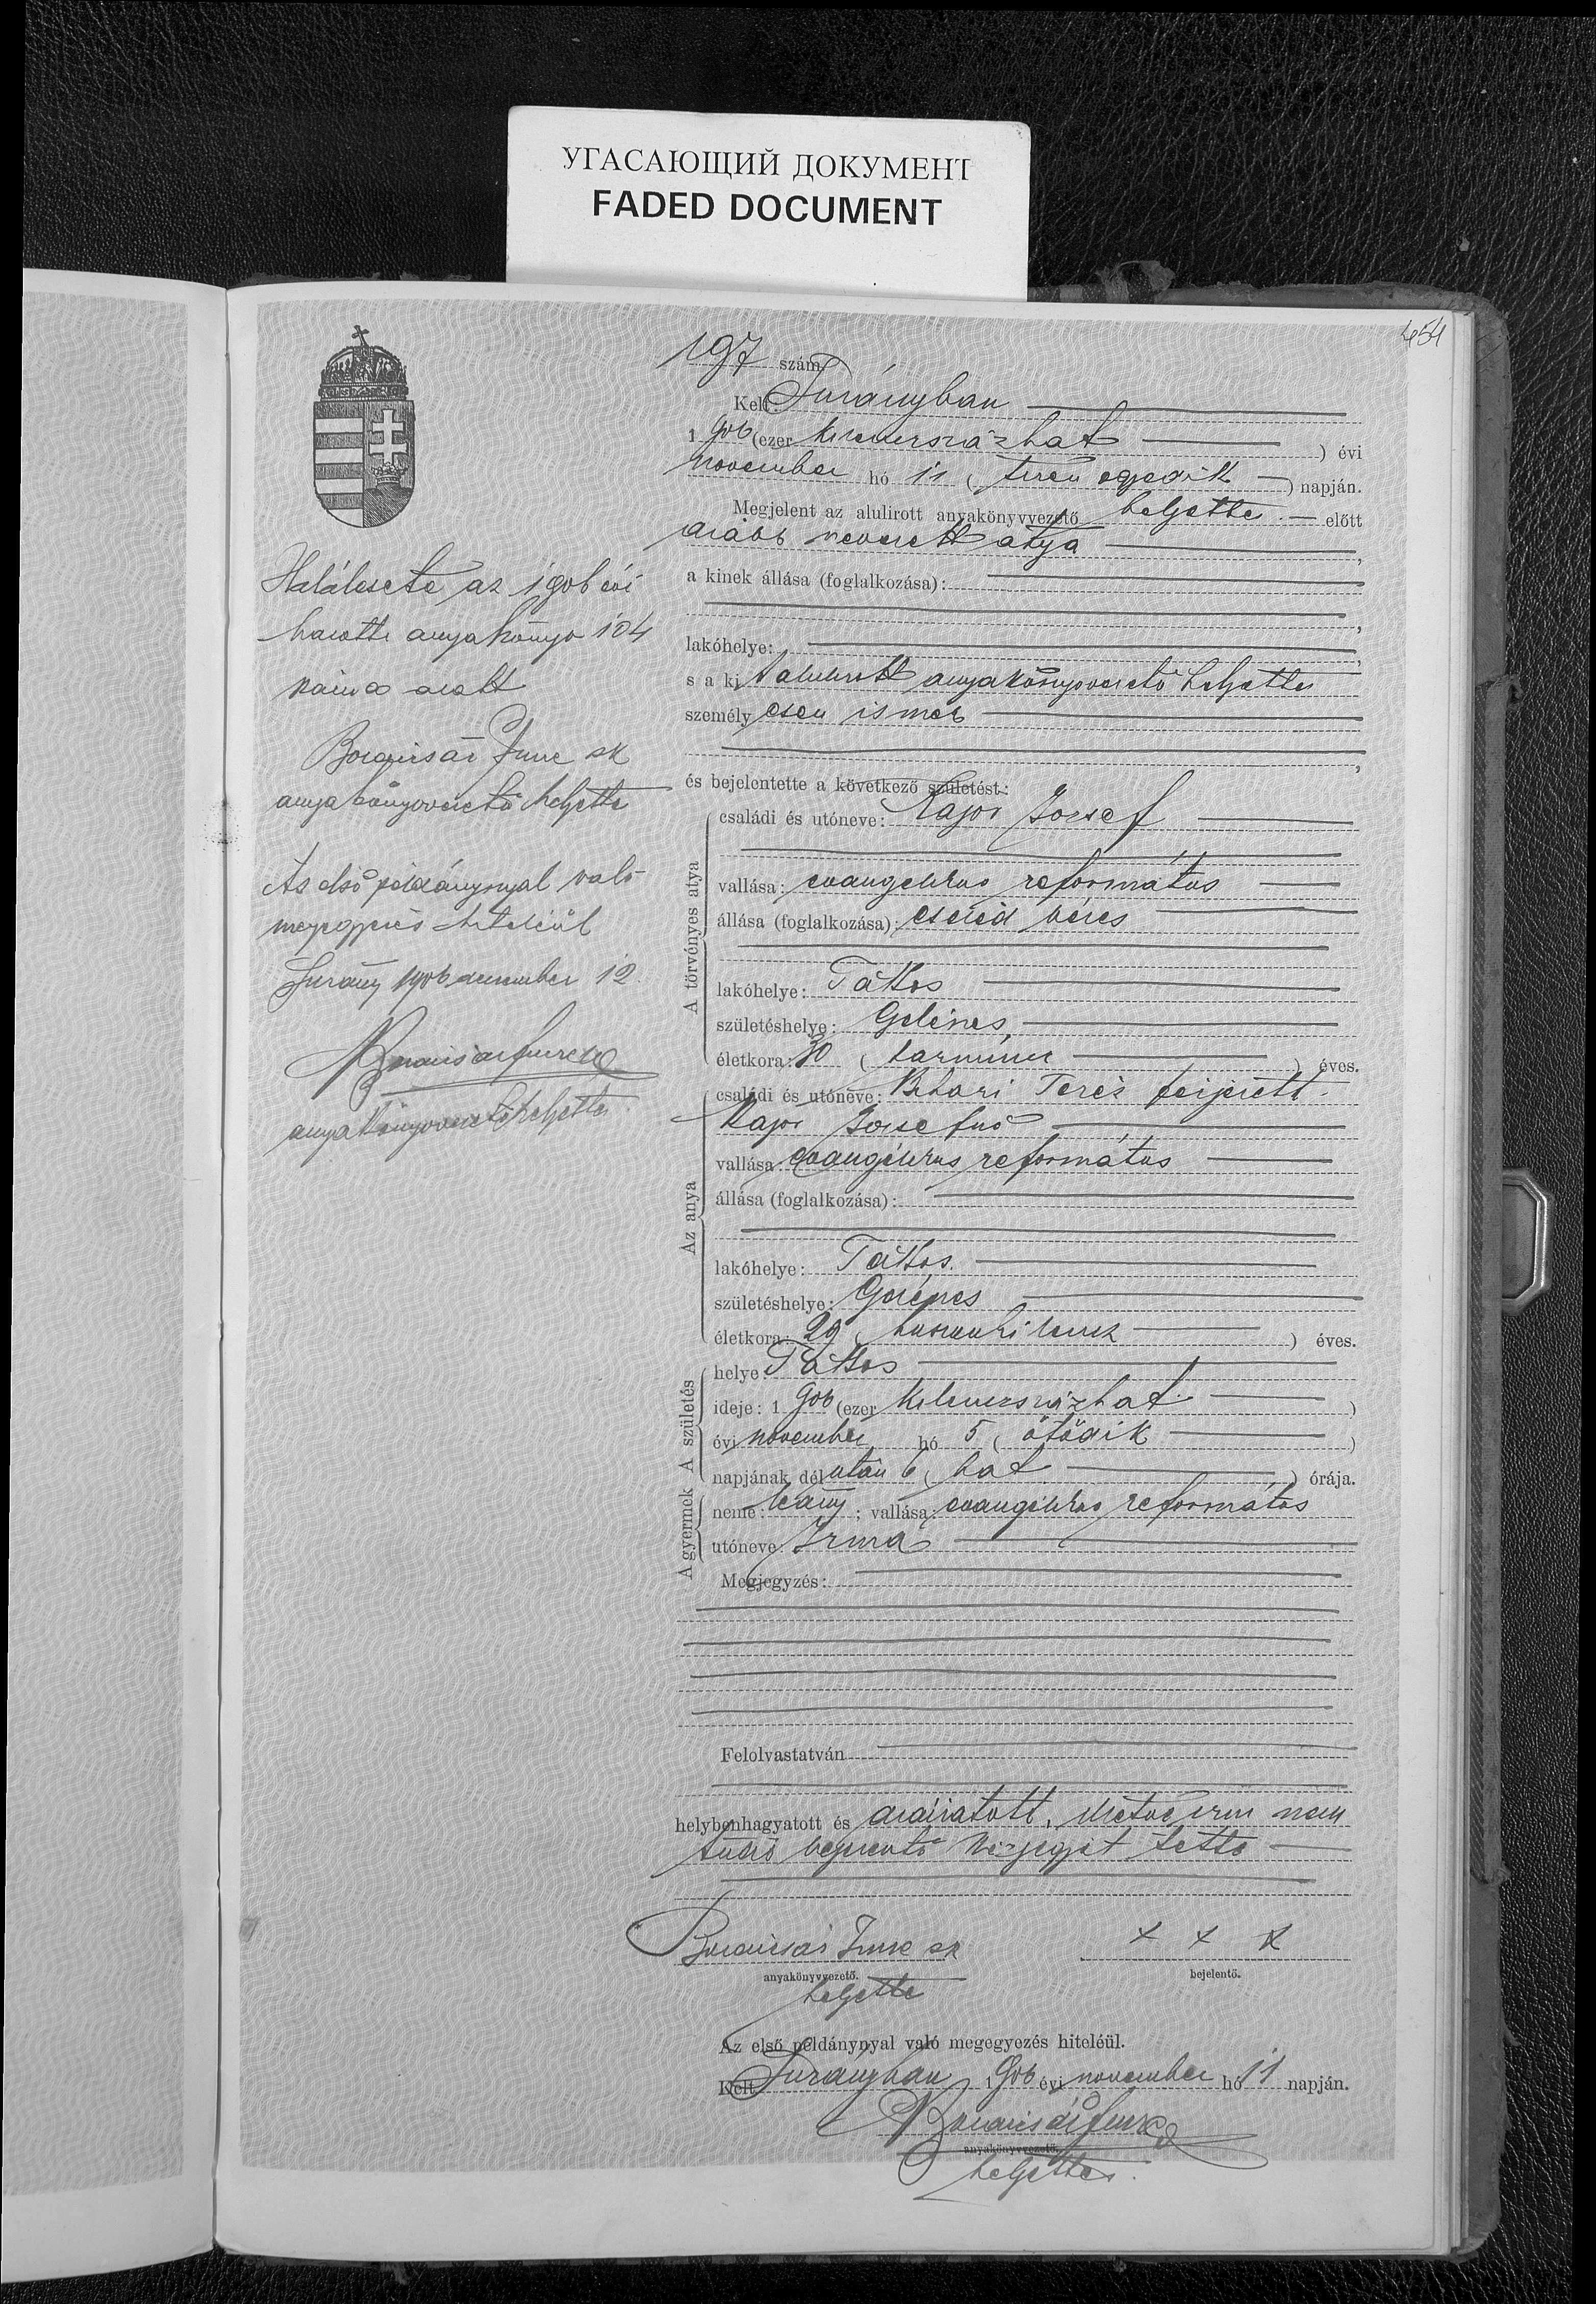 УГАСАЮЩИЙ ДОКУМЕНТ
FADED DOCUMENT
454
197 szám.
Kelt Surányban
1 906 (ezer kilencszázhat ) évi
november hó 11 ( tizen egyedik ) napján.
Megjelent az alulirott anyakönyvvezető helyettes előtt
alább nevezett atya ,
a kinek állása (foglalkozása):
,
lakóhelye: ,
s a kit alulirott anyakönyvvezető helyettes
személyesen ismer
,
és bejelentette a következő születést:
A törvényes atya
családi és utóneve: Kajor József
vallása: evangelikus református
állása (foglalkozása): cseléd béres
lakóhelye: Tákos
születéshelye: Gelénes
életkora: 30 ( harmincz ) éves.
Az anya
családi és utóneve: Bihari Teréz férjezett
Kajor Józsefné
vallása: evangélikus református
állása (foglalkozása):
lakóhelye: Tákos.
születéshelye: Gelénes
életkora: 29 ( huszonkilencz ) éves.
A születés
helye: Tákos
ideje: 1 906 (ezer kilenczszázhat )
évi november hó 5 ( ötödik )
napjának délután 6 ( hat ) órája.
A gyermek
neme: leány ; vallása: evangélikus református
utóneve: Irma
Megjegyzés:
Felolvastatván
helybenhagyatott és aláiratott, illetve irni nem
tudó bejelentő kézjegyét tette
Imre sk
anyakönyvvezető.
helyettes
+ + +
bejelentő.
Az első példánynyal való megegyezés hiteléül.
Kelt Surányban 1 906 évi november hó 11 napján.
anyakönyvvezető.
helyettes.
Halálesete az 1906 évi
halotti anyakönyv 104
száma alatt
Imre sk
anyakönyvvezető helyettes
Az első példánynyal való
megegyezés hiteléül
Surány 1906 december 12.
anyakönyvvezető helyettes.